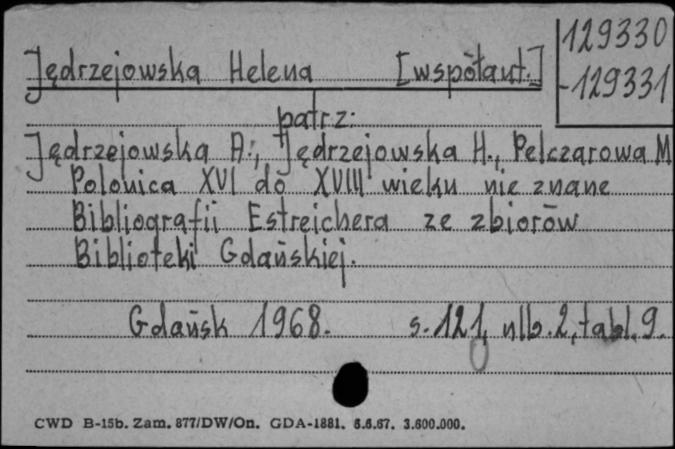 129330
-129331
Jędrzejowska Helena [współaut.]
patrz:
Jędrzejowska A., Jędrzejowska H., Pelczarowa M
Polonica XVI do XVIII wieku nie znane
Bibliografii Estreichera ze zbiorów
Biblioteki Gdańskiej.
Gdańsk 1968. s. 121, nlb. 2, tabl. 9.
CWD B-15b. Zam. 877/DW/On. GDA-1881. 6.6.67. 3.600.000.